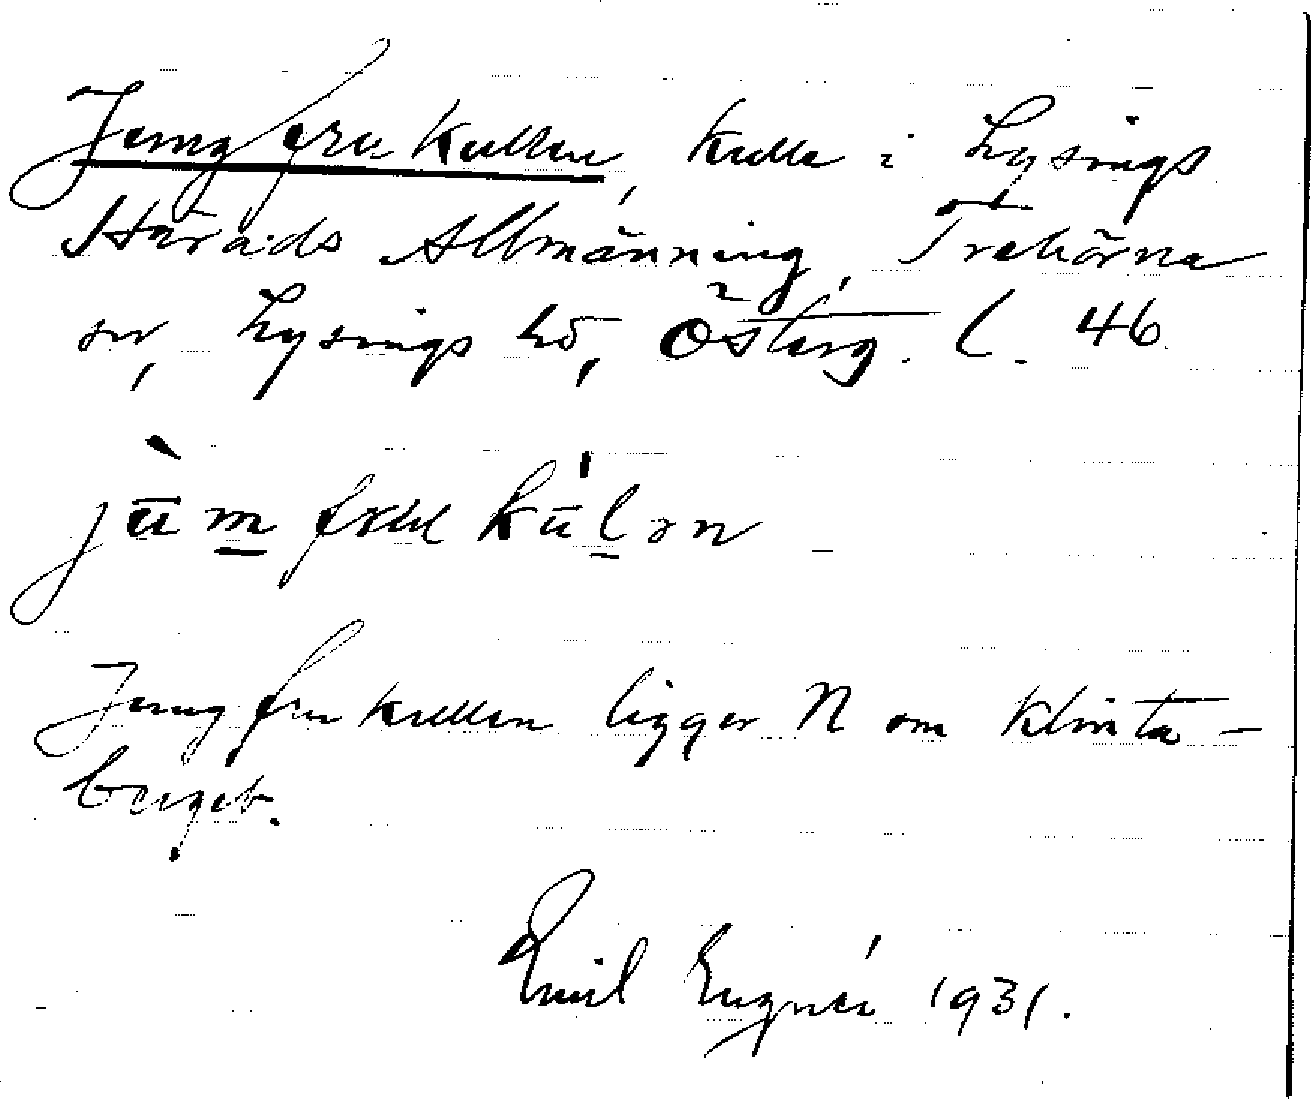 Jungfrukullen, kulle i Lysings
Härads Allmänning, Trehörna
sn, Lysings hd, Österg. l. 46
Jungfrukullen ligger N om Klinta-
berget.
Emil 1931.